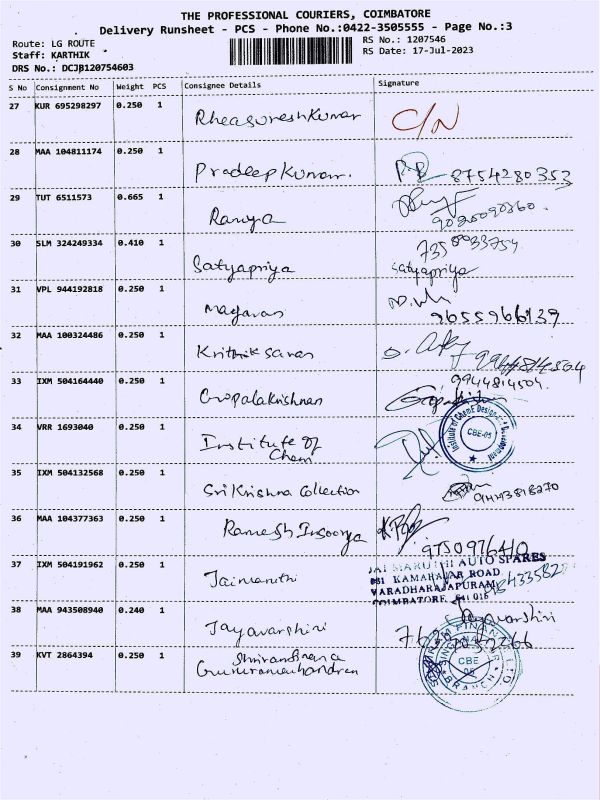 THE PROFESSIONAL COURIERS, COIMBATORE
Delivery Runsheet - PCS - Phone No.:0422-3505555 - Page No.:3
Route: LG ROUTE RS No.: 1207546
Staff: KARTHIK RS Date: 17-Jul-2023
DRS No.: DCJB120754603
S No Consignment No Weight PCS Consignee Details Signature
27 KUR 695298297 0.250 1 Rheasureshkumar C/N
28 MAA 104811174 0.250 1 Pradeepkumar. 8754280353
29 TUT 6511573 0.665 1 Ramya
30 SLM 324249334 0.410 1 Satyapriya 7358033754
satyapriya
31 VPL 944192818 0.250 1 9655966139
32 MAA 100324486 0.250 1 Krithiksaran
33 IXM 504164440 0.250 1 Gopalakrishnan 9944814504.
34 VRR 1693040 0.250 1 Institute of
Chem
Institute of ChemE Designer & Development
CBE-05
35 IXM 504132568 0.250 1 Sri Krishna Collection
36 MAA 104377363 0.250 1 Ramesh 9750976410
37 IXM 504191962 0.250 1 Jaimaruthi JAI MARUTHI AUTO SPARES
081 KAMARAJAR ROAD
VARADHARAJAPURAM
COIMBATORE 641 015
38 MAA 943508940 0.240 1 Jayavarshini
39 KVT 2864394 0.250 1
CBE
05
BRANCH